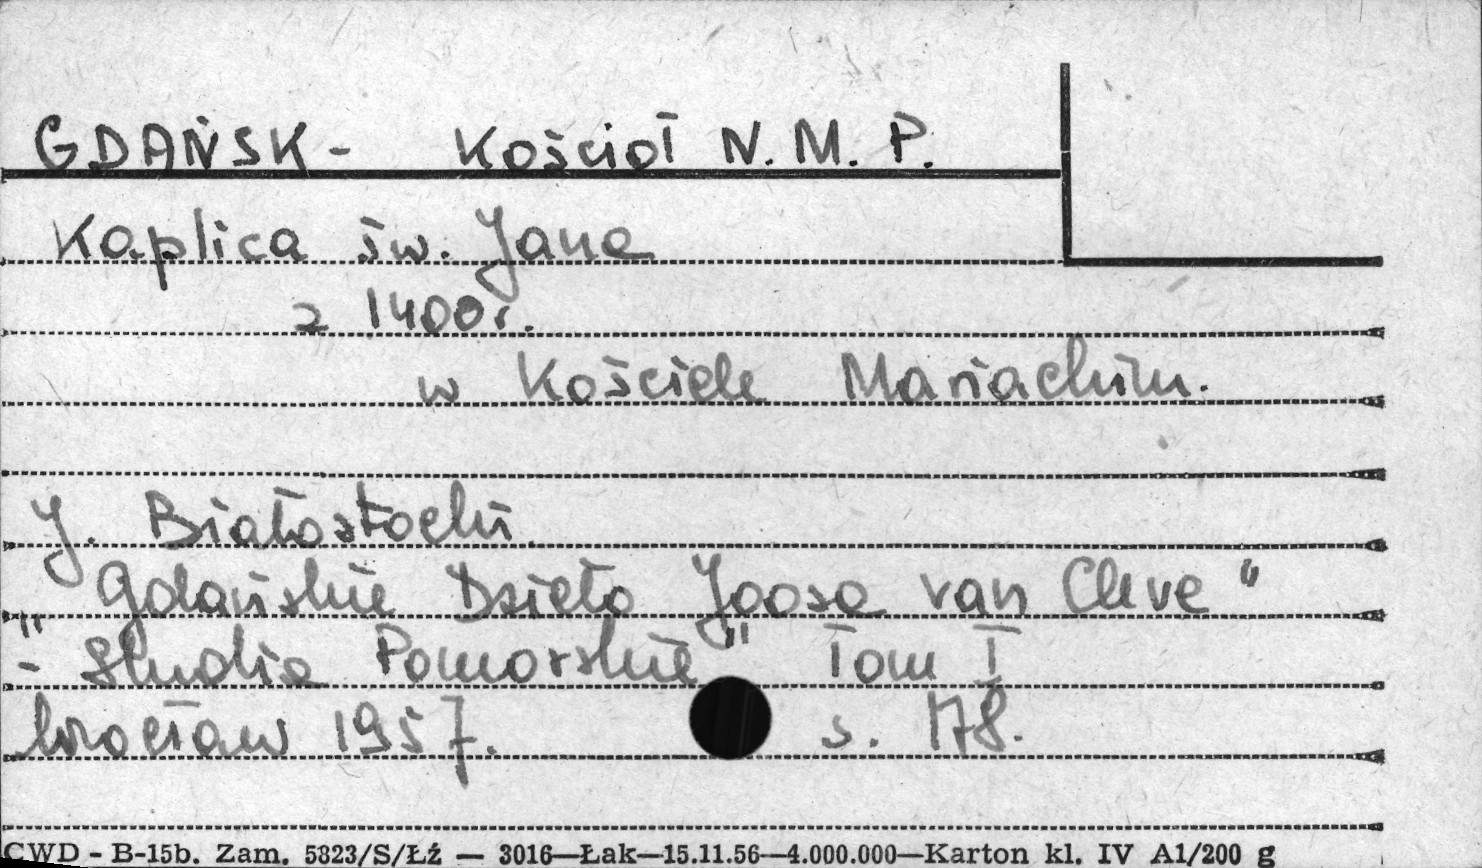 GDAŃSK - Kościół N. M. P.
Kaplica św. Jana
z 1400 r.
w Kościele Mariackim.
J. Białostocki.
Gdańskie Dzieło Joosa van Cleve"
- "Studia Pomorskie" Tom I
Wrocław 1957. s. 178.
CWD - B-15b. Zam. 5823/S/Łź — 3016—Łak—15.11.56—4.000.000—Karton kl. IV A1/200 g